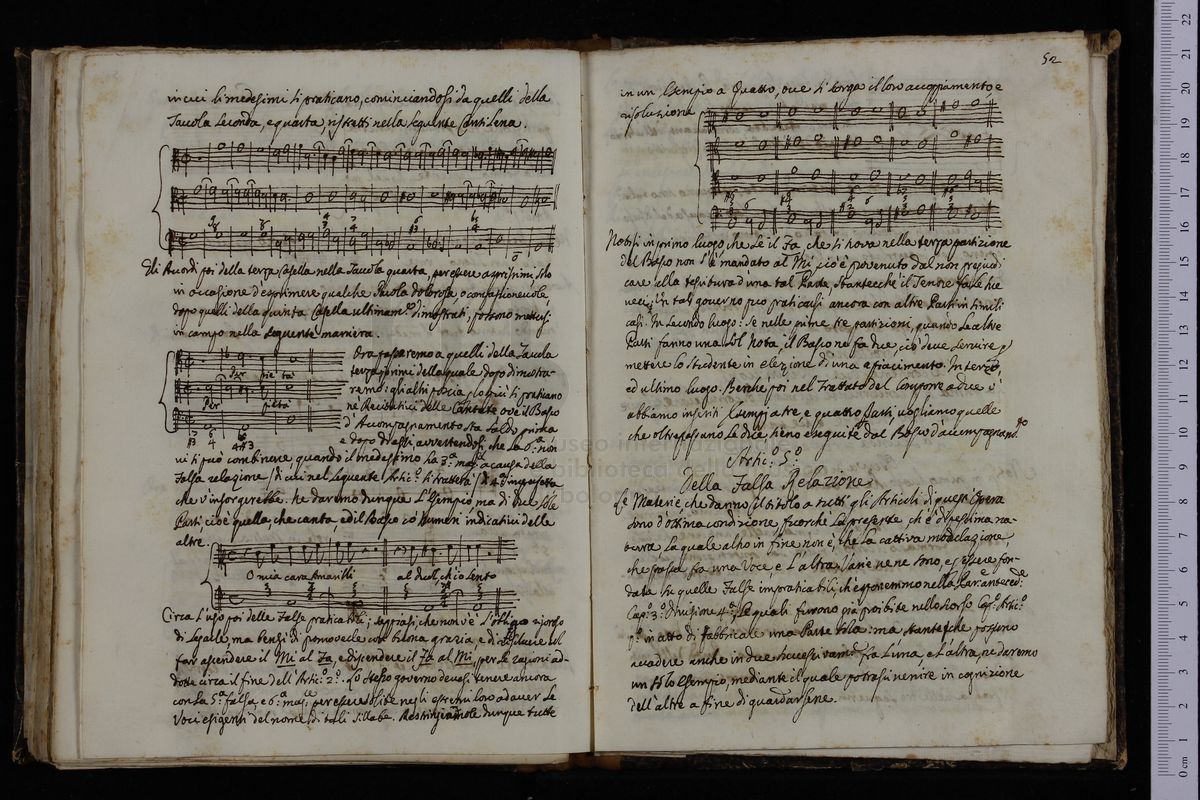 in cui li medesimi si praticano, cominciandosi da quelli della
Tavola seconda, e quarta, ristretti nella seguente Cantilena.
Gli Acordi poi della terza Casella nella Tavola quarta, per essere asprissimi, solo
in occasione d'esprimere qualche Parola dolorosa, o compassionevole,
dopo quelli della quinta Casella ultimam.te dimostrati, possono mettersi
in campo nella seguente maniera.
Per pie tà
Per pietà
Ora passaremo a quelli della Tavola
terza, primi della quale dopo dimostra-
remo: gli altri poscia, che più si pratticano
ne Recitativi delle Cantate ove il Basso
d'Accompagnamento sta saldo prima
e dopo d'essi avvertendosi, che la 6.a non
vi si può combinare quando il medesimo la 3.a mag.e a causa della
Falsa relazione (di cui nel seguente Artic.o si tratterà)
che v'insorgerebbe. Ne daremo dunque l'Esempio, ma di due sole
Parti cioè quella, che canta, ed il Basso co' Numeri indicativi delle
altre.
O mia cara Amarilli al duol, ch'io sento
Circa l'uso poi delle False praticabili; sappiasi, che non v'è l'obligo
di legalle, ma bensì di promoverle con buona grazia, e di
far ascendere il Mi al Fa, e discendere il Fa al Mi, per le ragioni ad-
dotte circa il fine dell'Artic.o 2.o. Lo stesso governo devesi tenere ancora
con la 5.a falsa, e 6.a mag.e per essere solite negli estremi loro ad aver le
Voci esigenti del nome di tali sillabe. Restringiamole dunque tutte
52
in un Esempio a Quattro, ove si scorga il loro accoppiamento e
risoluzione
Notisi in primo luogo, che se il Fa, che si trova nella terza partizione
del Basso non s'è mandato al Mi, ciò è provenuto dal non pregiudi-
care alla tessitura d'una tal Parte, stantecche il Tenore fa le sue
veci; In tal governo può praticarsi ancora con altre Parti in simili
casi. In secondo luogo: Se nelle prime tre partizioni, quando le altre
Parti fanno una sol Nota, il Basso ne fa due, ciò deve servire p
mettere lo studente in elezione di una a piacimento. In terzo,
ed ultimo luogo. Benchè poi nel Trattato del Comporre a due
abbiamo inseriti Esempj a tre, e quattro Parti, vogliamo quelle
che oltrepassano le dice, sieno eseguite dal Basso d'accompagnam.to
Artic.o 5.o
Della Falsa Relazione
Le Materie, che danno il titolo a tutti gli Articoli di quest'Opera
sono d'ottima condizione fuorche la presente, ch'è di pessima na-
tura la quale alho in fine non è, che la cattiva modulazione,
che passa fra una Voce, e l'altra
data su quelle False impraticabili, che esponemmo nella Par. anteced.e
Cap.o 3.o Divisione 4.a, le quali furono già proibite nello scorso Cap.o Artic.o
p.o in atto di fabbricare una Parte sola: ma stanteche possono
accadere anche in due successivam.te fra l'una, e l'altra, ne daremo
un solo Esempio, mediante il quale potrassi venire in cognizione
dell'altre a fine di guardarsene.